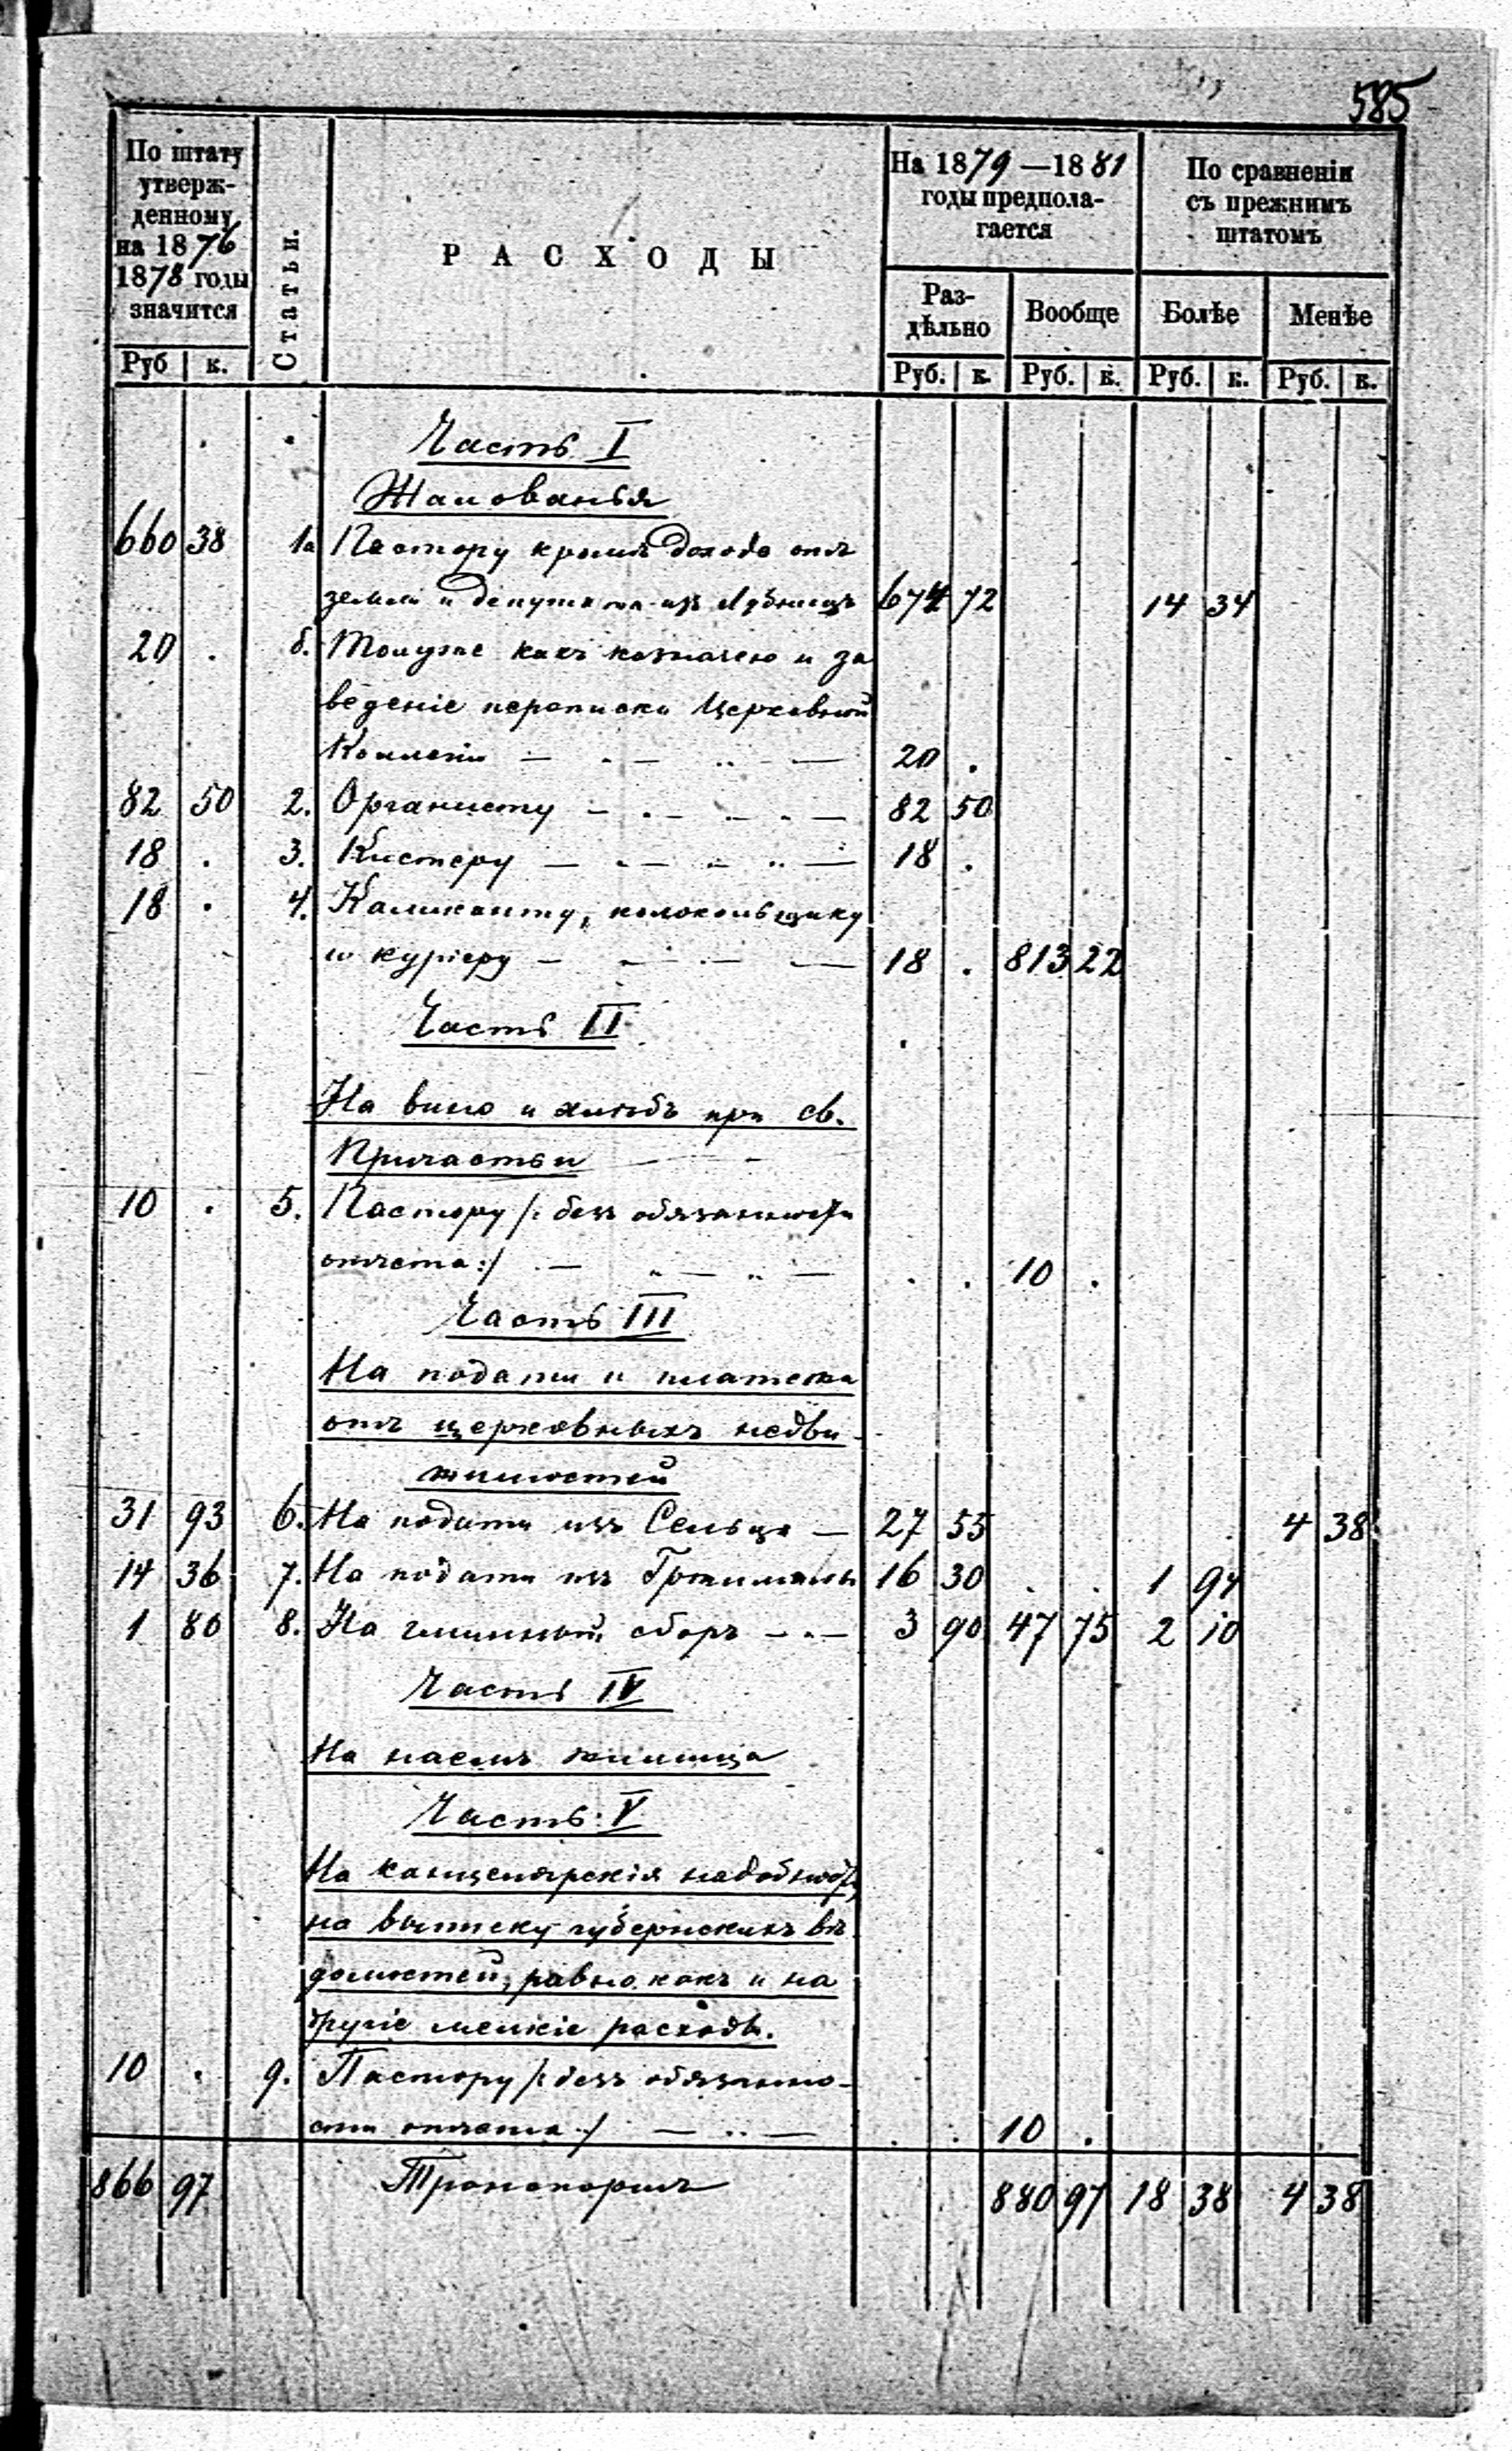 585
По штату
утверж-
денному
на 1876
1878 годы
значится
Руб к.
Статьи.
РАСХОДЫ
На 1879—1881
годы предпола-
гается
Раз-
дѣльно
Руб. к.
Вообще
Руб. к.
По сравненіи
съ прежнимъ
штатомъ
Болѣе
Руб. к.
Менѣе
Руб. к.
Часть I
Жалованья
660 38 1а Пастору кромѣ дохода отъ
земли и депутата изъ 674 72 14 34
20 . б. Томуже какъ казначею и за
веденіе переписки Церковной
Коллегіи — . — .. — 20 .
82 50 2. Органисту — . — .. — 82 50
18 . 3. Кистеру — . — .. — 18 .
18 . 4. Каликанту, колокольщику
и курьеру — . — . — 18 . 813 22
Часть II
На вино и хлѣбъ при св.
Причастьи
10 . 5. Пастору /: безъ обязанности
отчета :/ . — .. — .. — . . 10 .
Часть III
На подати и платежи
отъ церковныхъ недви-
жимостей
31 93 6. На подати изъ Сельца — 27 55 4 38
14 36 7. На подати изъ 16 30 . . 1 94
1 80 8. На гминный сборъ — . — 3 90 47 75 2 10
Часть IV
На наемъ жилища
Часть V
На канцелярскія надобности,
на выписку губернскихъ вѣ-
домостей, равно какъ и на
другіе мелкіе расходы.
10 . 9. Пастору /: безъ обязанно-
сти отчета :/ — .. — . . 10 .
866 97 Транспортъ 880 97 18 38 4 38